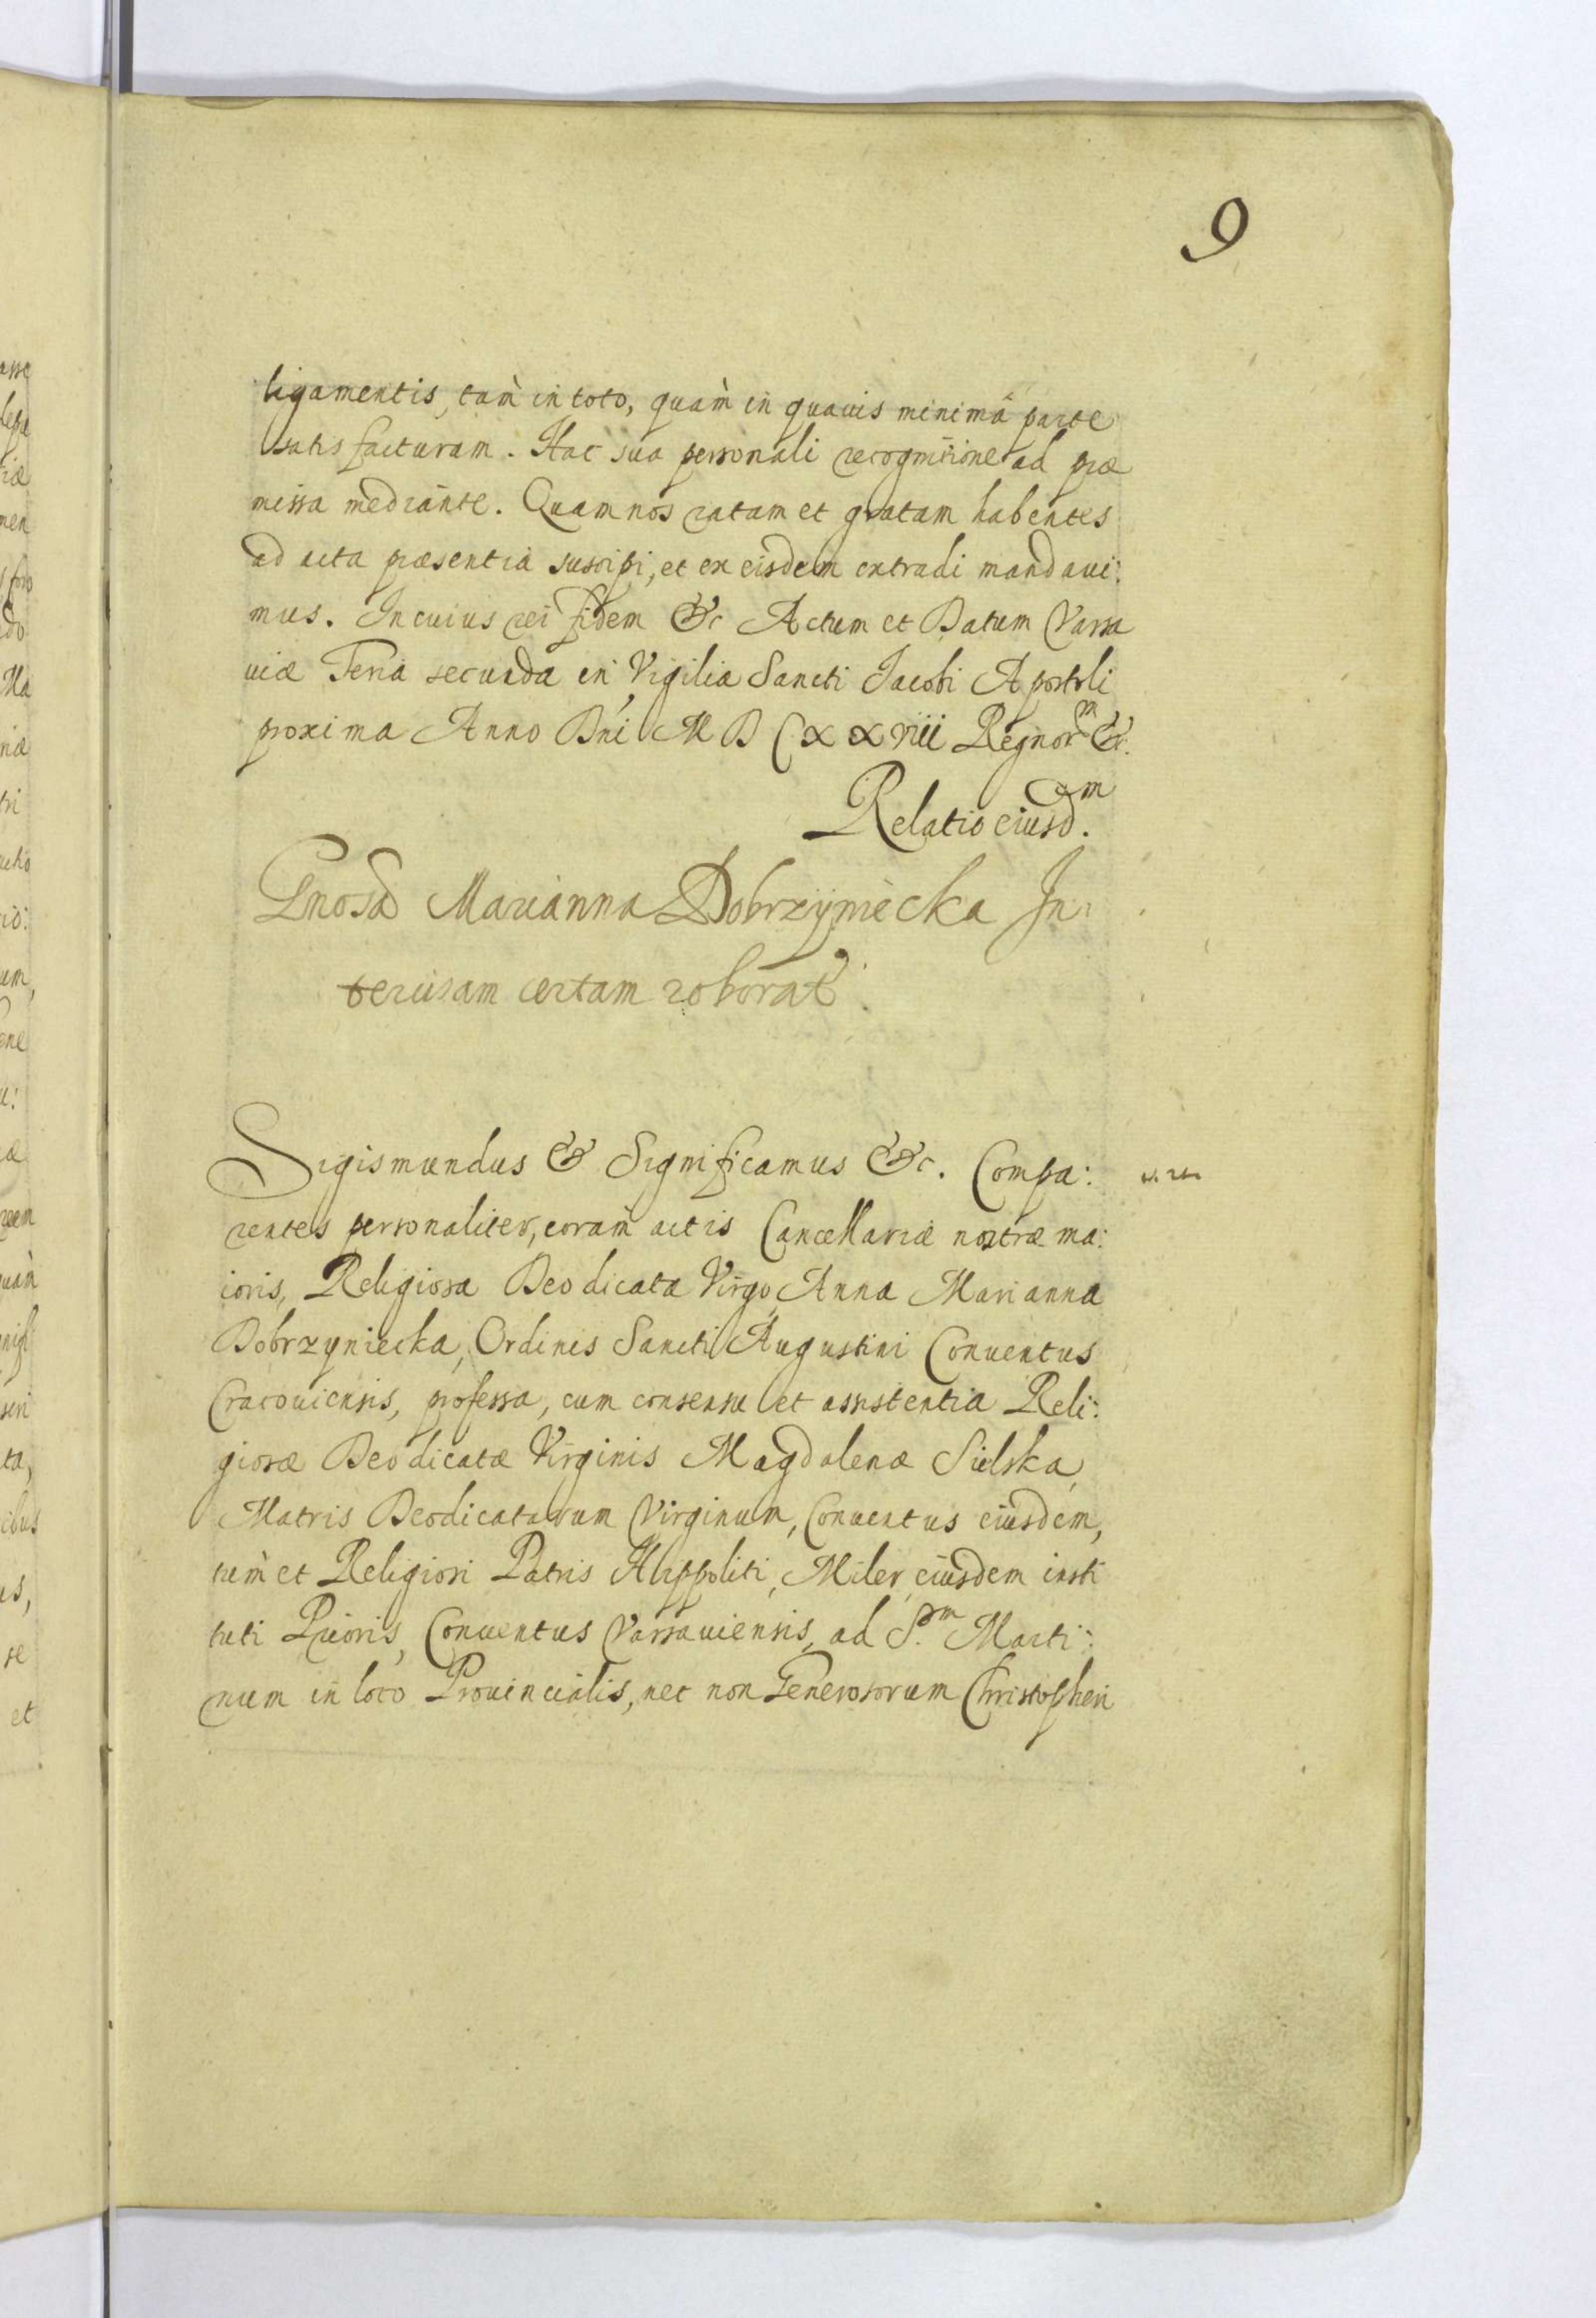 9
ligamentis, tam̀ in toto, quam̀ in quauis minimâ parte
satis facturam. Hac sua personali recognitione ad præ
missa mediante. Quam nos ratam et gratam habentes
ad acta præsentia suscipi, et ex eisdem extradi mandaui:
mus. In cuius rei fidem &c Actum et Datum Varsa
uiæ Feria secunda in Vigilia Sancti Jacobi Apostoli
proxima Anno Dni M D C X X VIII Regnor m &.
Relatio eiusd. m
Gnosa Marianna Dobrzyniecka In:
tercisam certam roborat.
Sigismundus & Significamus &c. Compa:
rentes personaliter, coram actis Cancellariæ nostræ ma:
ioris, Religiosa Deo dicata Virgo, Anna Marianna
Dobrzyniecka, Ordinis Sancti Augustini Conuentus
Cracouiensis, professa, cum consensu et assistentia Reli:
giosæ Deo dicatæ Virginis Magdalenæ Sielska,
Matris Deodicatarum Virginum, Conuentus eiusdem,
tum̀ et Religiosi Patris Hippoliti, Miler, eiusdem insti
tuti Prioris, Conuentus Varsauiensis, ad S. m Marti:
num in loco Prouincialis, nec non Generosorum Christopheri